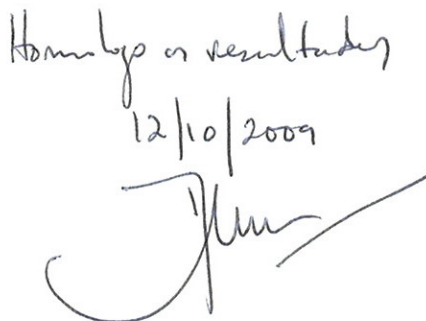 Homologo os resultados
12/10/2009